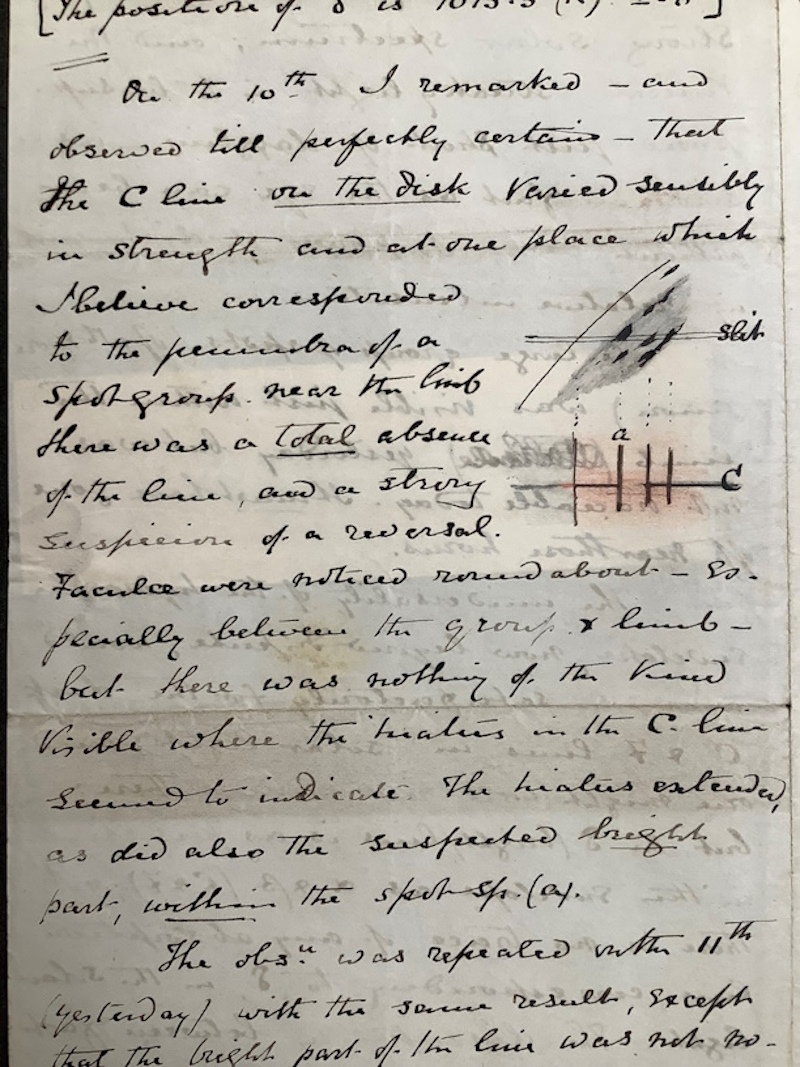 [The position of δ is 1015.5 (K)
On the 10th I remarked – and
observed till perfectly certain – that
the C line on the disk varied sensibly
in strength and at one place which
I believe corresponded
to the penumbra of a
spot group near the limb
there was a total absence
of the line, and a strong
suspicion of a reversal.
Slit
a
C
Faculæ were noticed round about – es-
pecially between the group & limb –
but there was nothing of the kind
visible where the hiatus in the C line
seemed to indicate. The hiatus extended,
as did also the suspected bright
part, within the spot sp. (a).
The obsn was repeated on the 11th
(yesterday) with the same result, except
that the bright part of the line was not no-